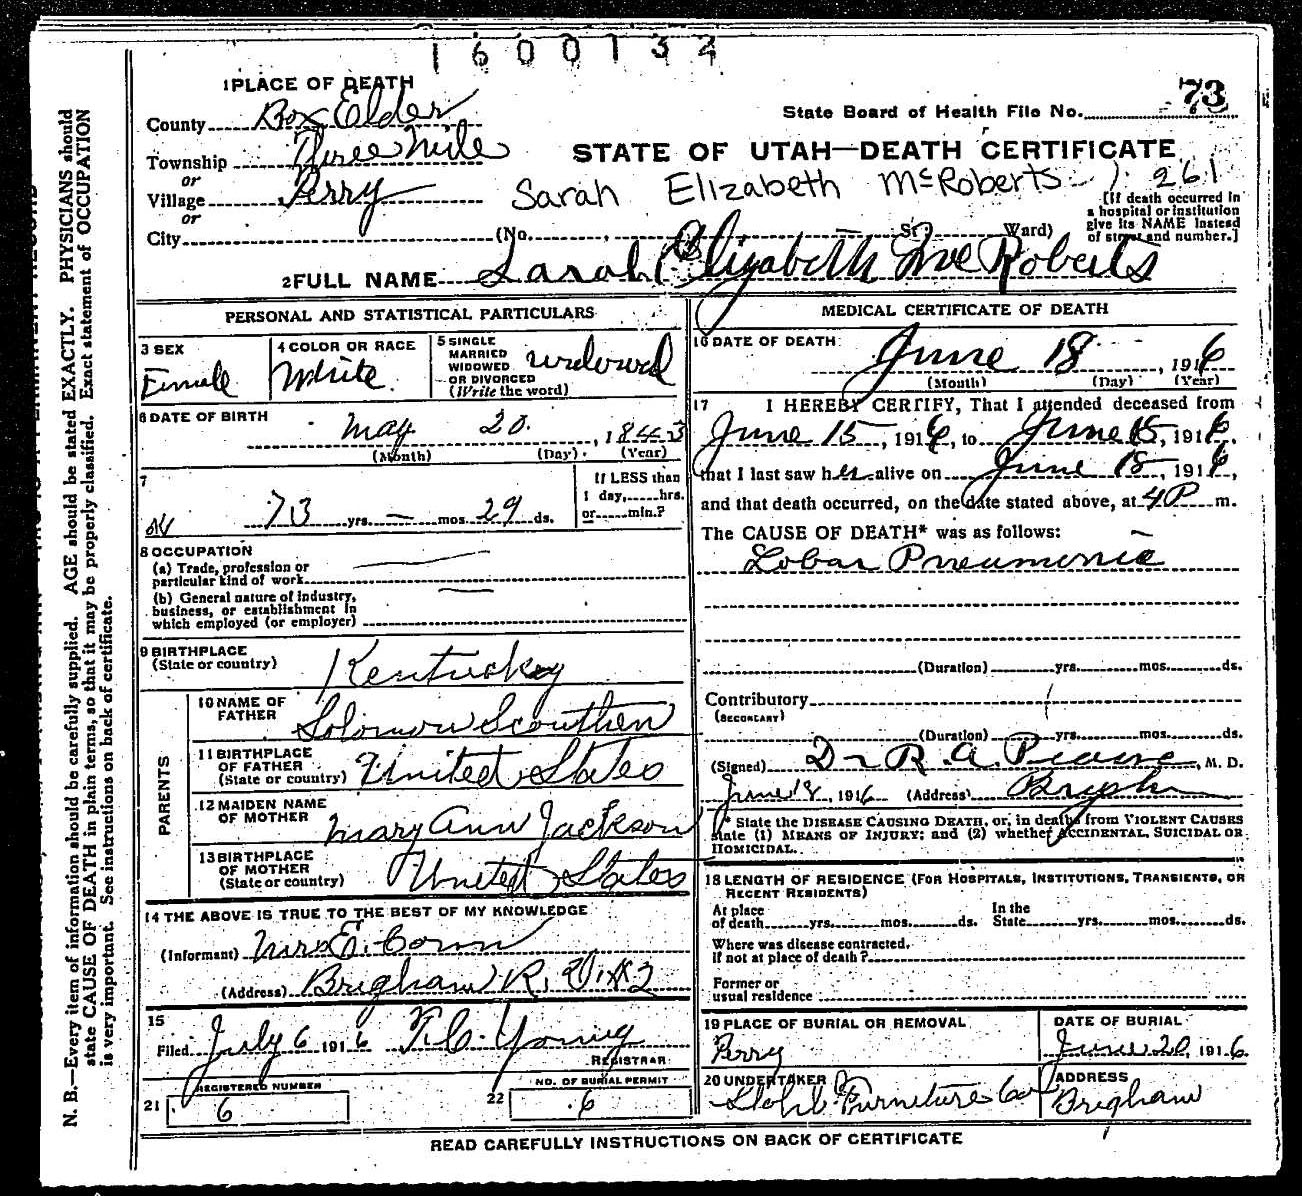 1600732
1 PLACE OF DEATH
73
State Board of Health File No.
County Box Elder
Township Three Mile
or
STATE OF UTAH—DEATH CERTIFICATE
Village Perry
Sarah Elizabeth McRoberts 261
or
[If death occurred in a hospital or institution give its NAME instead of street and number.]
City (No. St. Ward)
2 FULL NAME Sarah Elizabeth McRoberts
PERSONAL AND STATISTICAL PARTICULARS
3 SEX
Female
4 COLOR OR RACE
White
5 SINGLE
MARRIED
WIDOWED
OR DIVORCED
(Write the word)
widowed
6 DATE OF BIRTH
May 20, 1843
(Month) (Day) (Year)
7
73 yrs. — mos. 29 ds.
If LESS than
1 day, hrs.
or min.?
8 OCCUPATION
(a) Trade, profession or
particular kind of work
(b) General nature of industry,
business, or establishment in
which employed (or employer)
9 BIRTHPLACE
(State or country)
Kentucky
PARENTS
10 NAME OF
FATHER
Solomon Scouthen
11 BIRTHPLACE
OF FATHER
(State or country)
United States
12 MAIDEN NAME
OF MOTHER
Mary Ann Jackson
13 BIRTHPLACE
OF MOTHER
(State or country)
United States
14 THE ABOVE IS TRUE TO THE BEST OF MY KNOWLEDGE
(Informant) Mrs E.
(Address) Brigham R. 2
15
Filed July 6 1916 Young
REGISTRAR
REGISTERED NUMBER
21 6
NO. OF BURIAL PERMIT
22 6
MEDICAL CERTIFICATE OF DEATH
16 DATE OF DEATH
June 18, 1916
(Month) (Day) (Year)
17 I HEREBY CERTIFY, That I attended deceased from
June 15, 1916, to June 18, 1916,
that I last saw her alive on June 18, 1916,
and that death occurred, on the date stated above, at 4 P m.
The CAUSE OF DEATH* was as follows:
Lobar Pneumonia
(Duration) yrs. mos. ds.
Contributory
(SECONDARY)
(Duration) yrs. mos. ds.
(Signed) Dr R. A. Pearse, M. D.
June 18, 1916 (Address) Brigham
* State the DISEASE CAUSING DEATH, or, in deaths from VIOLENT CAUSES
state (1) MEANS OF INJURY; and (2) whether ACCIDENTAL, SUICIDAL OR
HOMICIDAL.
18 LENGTH OF RESIDENCE (FOR HOSPITALS, INSTITUTIONS, TRANSIENTS, OR
RECENT RESIDENTS)
At place
of death yrs. mos. ds.
In the
State yrs. mos. ds.
Where was disease contracted,
if not at place of death?
Former or
usual residence
19 PLACE OF BURIAL OR REMOVAL
Perry
DATE OF BURIAL
June 20, 1916
20 UNDERTAKER
Furniture Co
ADDRESS
Brigham
READ CAREFULLY INSTRUCTIONS ON BACK OF CERTIFICATE
N. B.—Every item of information should be carefully supplied. AGE should be stated EXACTLY. PHYSICIANS should
state CAUSE OF DEATH in plain terms, so that it may be properly classified. Exact statement of OCCUPATION
is very important. See instructions on back of certificate.